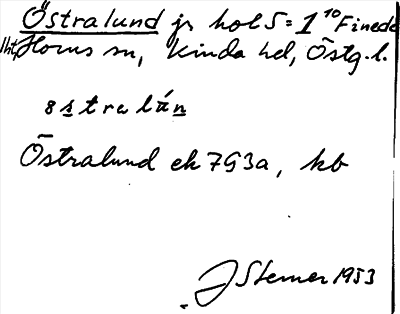 Östralund js kol 5 = 1 10 Finede
lht, Horns sn, Kinda hd, Östg. l.
östralún
Östralund ek 7G3a, kb
J Sterner 1953